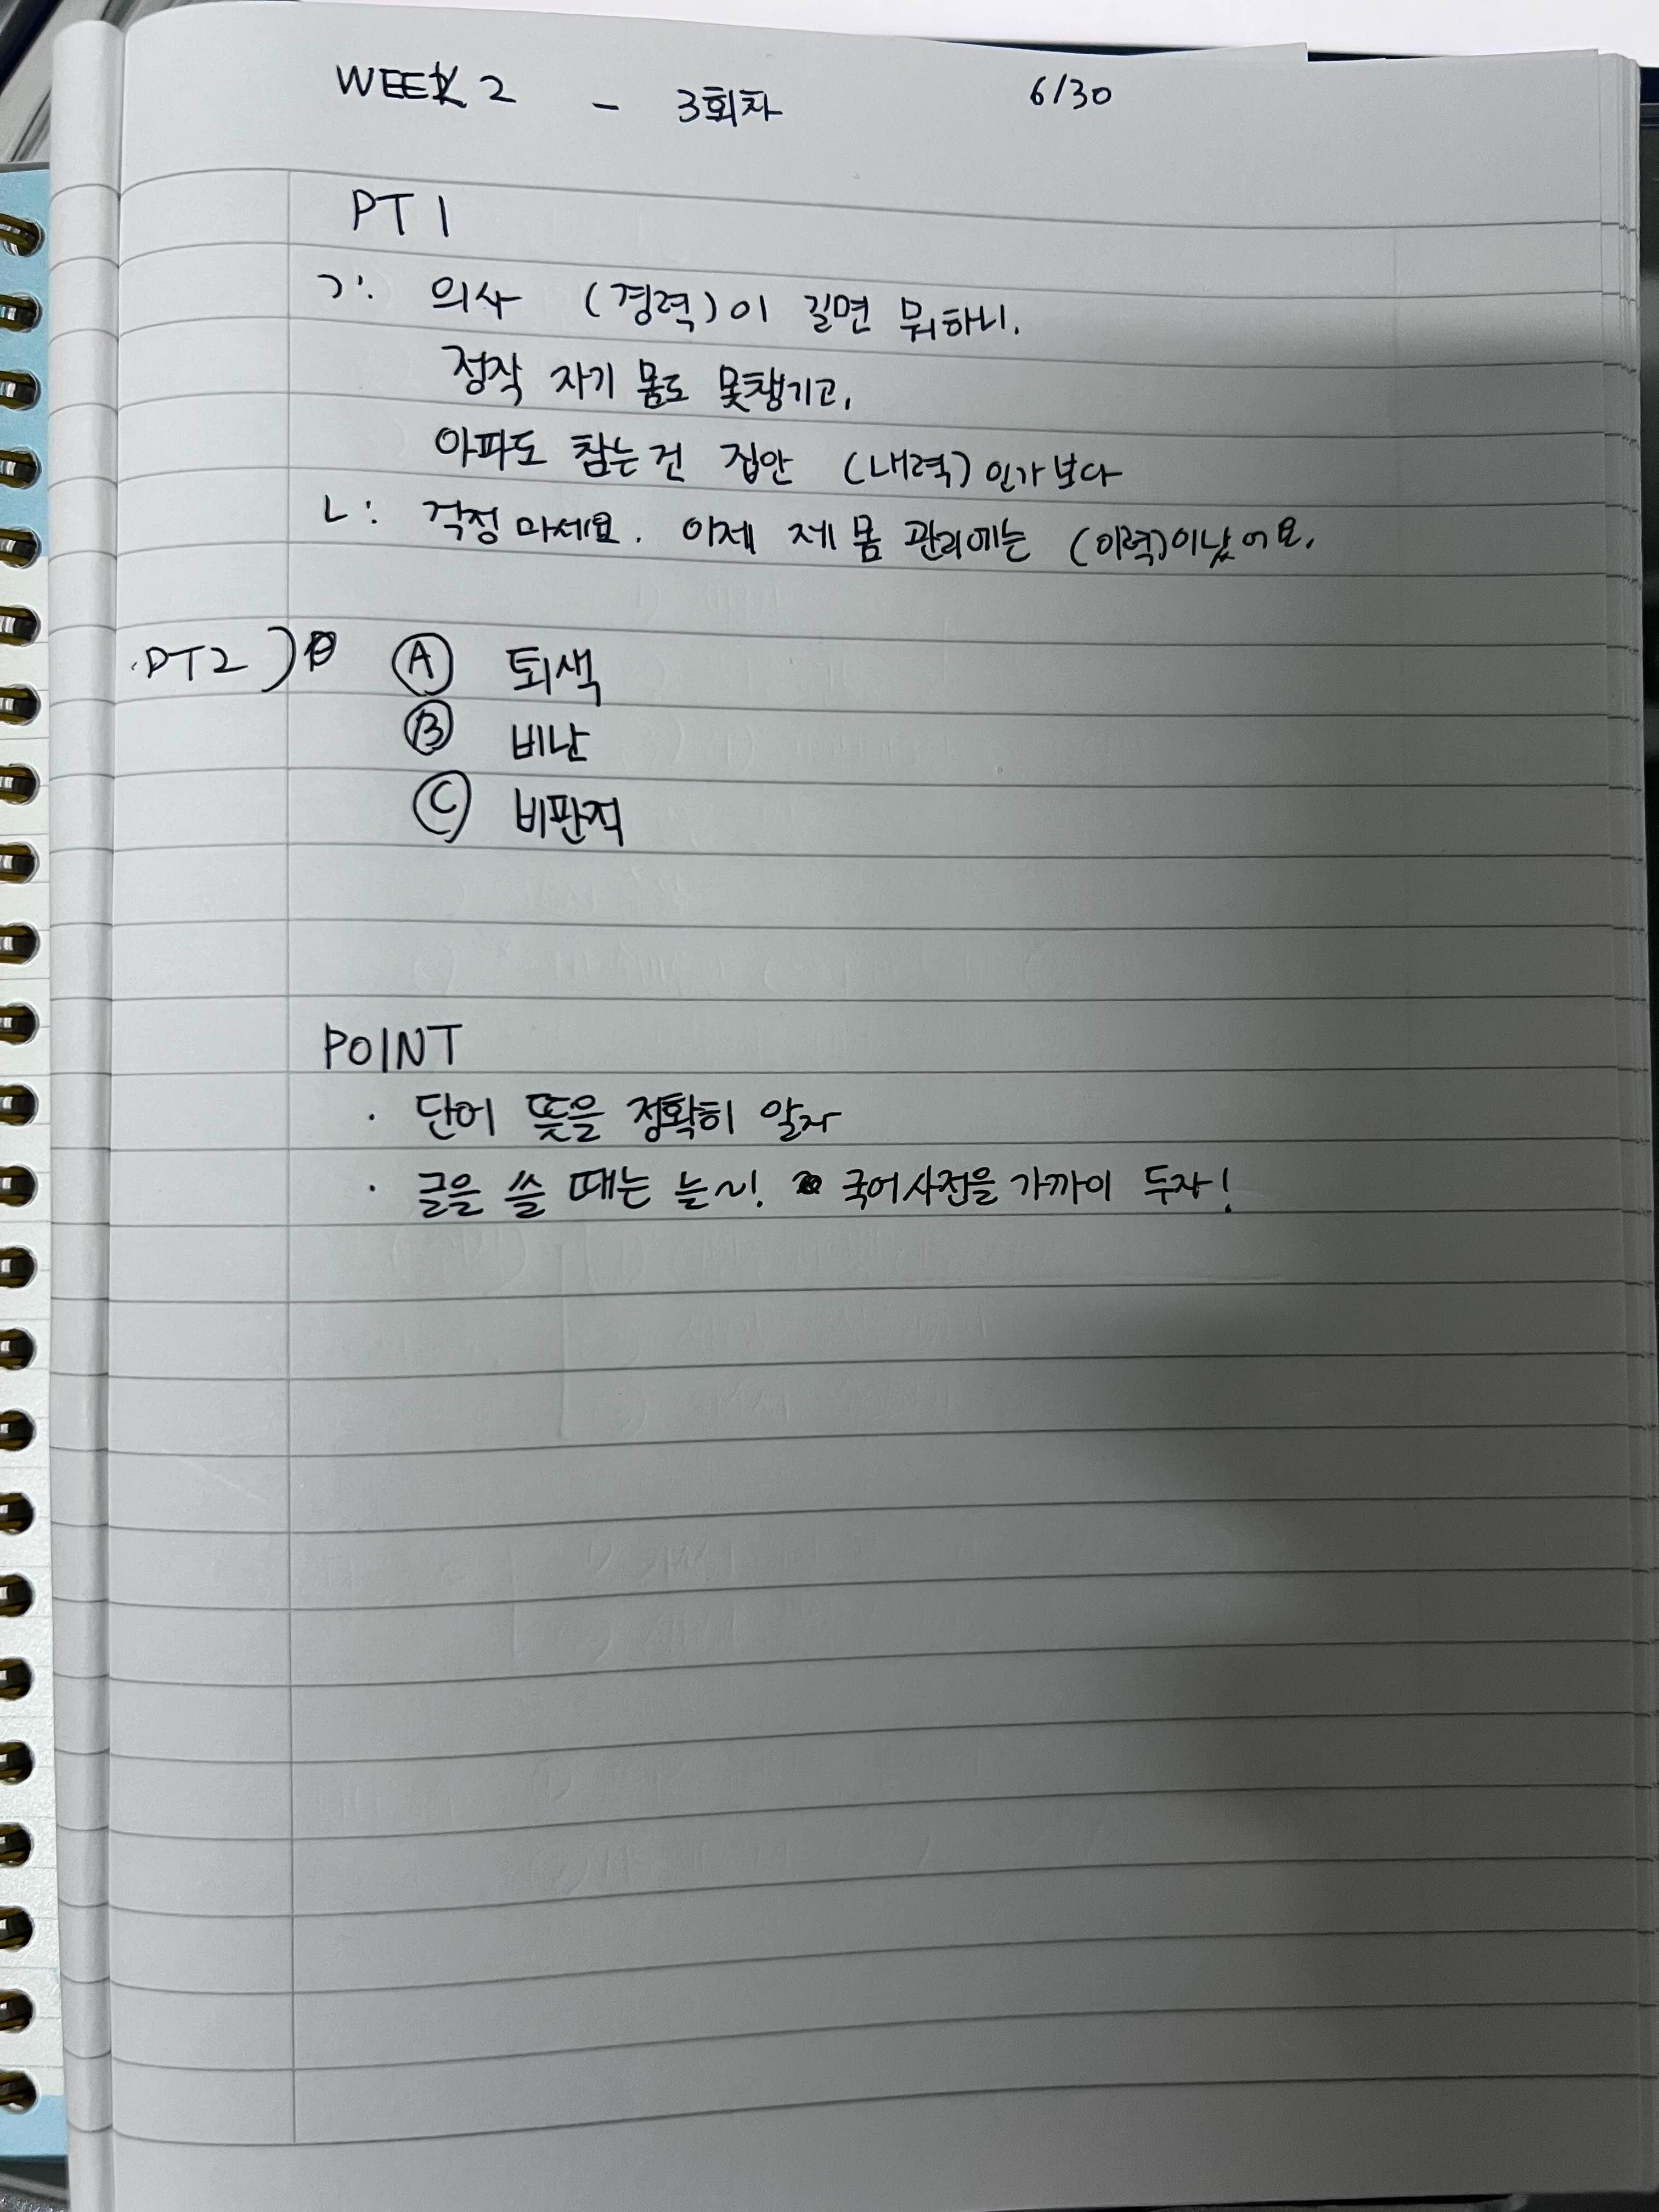 WEEK 2 - 3회차 6/30
PT 1
ㄱ: 의사 (경력)이 길면 뭐하니.
정작 자기 몸도 못챙기고,
아파도 참는건 집안 (내력)인가보다
ㄴ: 걱정마세요. 이제 제 몸 관리에는 (이력)이났어요.
PT2) Ⓐ 퇴색
Ⓑ 비난
Ⓒ 비판적
POINT
· 단어 뜻을 정확히 알자
· 글을 쓸 때는 늘~! 국어사전을 가까이 두자!